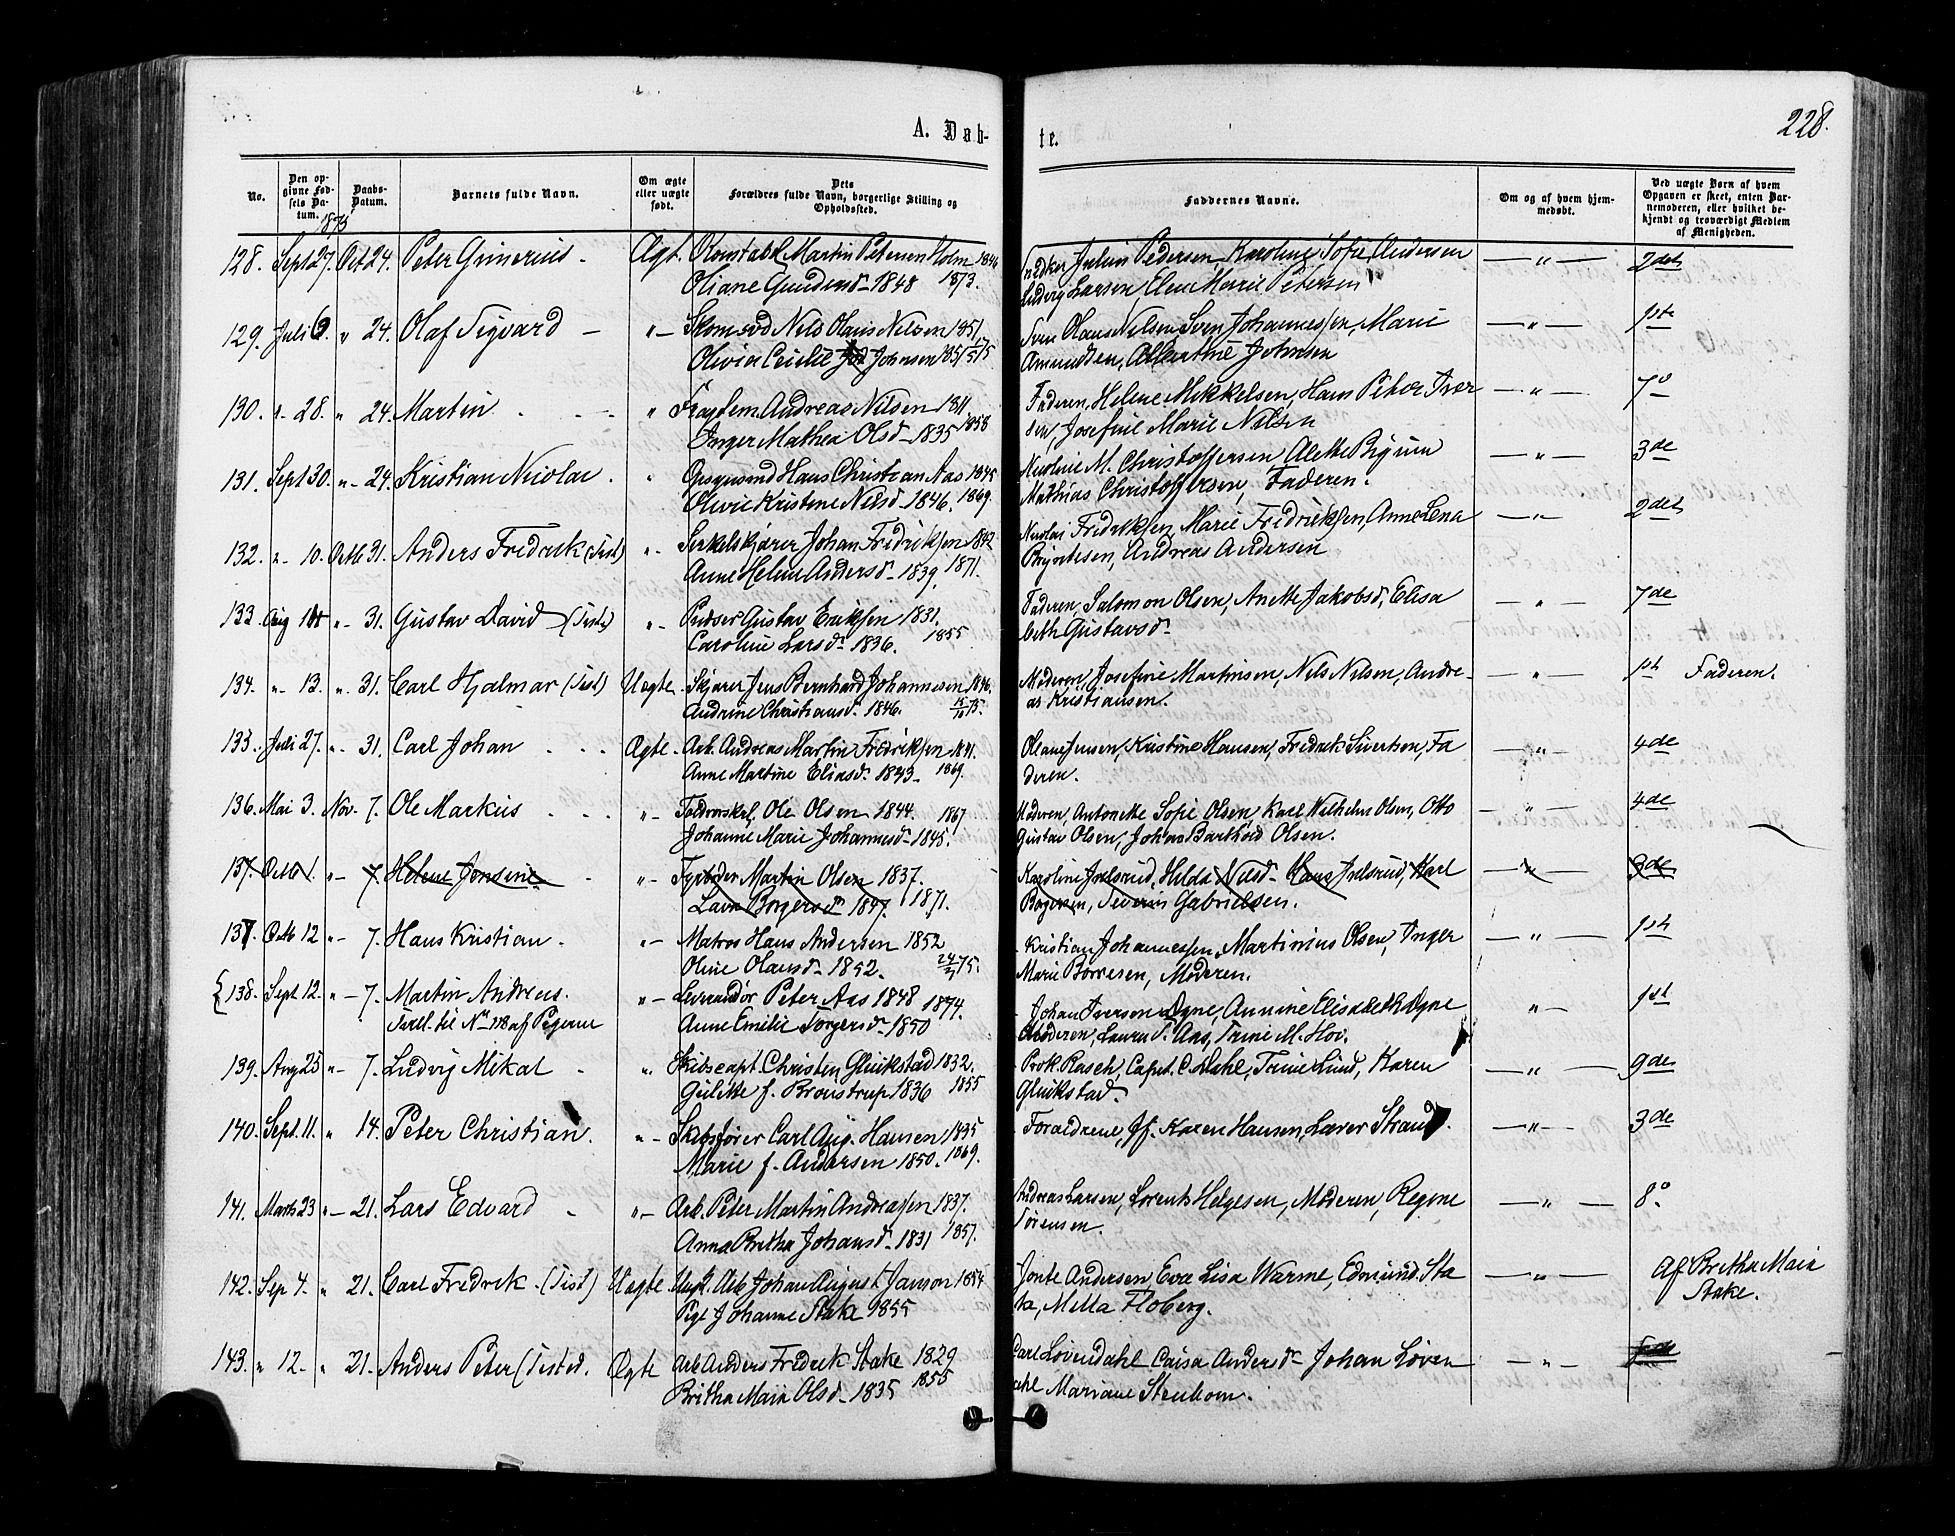 A. Døb-
te.
228.
No.
Den op-
givne Fød-
sels Da-
tum.
1875
Daabs-
Datum.
Barnets fulde Navn.
Om ægte
eller uægte
født.
Dets
Forældres fulde Navn, borgerlige Stilling og
Opholdssted.
Faddernes Navne.
Om og af hvem hjem-
medøbt.
Ved uægte Børn af hvem
Opgaven er skeet, enten Bar-
nemoderen, eller hvilket be-
kjendt og troværdigt Medlem
af Menigheden.
128. Sept 27. Oct 24. Peter Grinerius - Ægt. Konstabl Martin Petersen Holm 1846
Oliane Gundersd. 1848 1873.
Snedker Julius Pedersen, Karoline Sofie Andersen — " — 2det
Ludvig Larsen, Elen Marie Petersen
129. Juli 6. " 24. Olaf Sigvard — "- Skom.svd Nils Olaus Nilsen 1851,
Olivia Cecilie Johnsen 1851 /75
Sven Olaus Nilsen, Sven Johannessen, Marie — " — 1ste
Amundsen, Albertine Johnsen
130. "- 28. " 24. Martin " Andreas Nilsen 1811
Inger Mathea Olsd. 1835 1858
Faderen, Helene Mikkelsen, Hans Peter Iver — " — 7°
sen, Josefine Marie Nilsen
131. Sept 30. "- 24. Kristian Nicolai . " Hans Christian Aas 1845
Olivie Kristine Nilsd. 1846. 1869.
Nicoline M. Christoffersen, Alette Bigum — " — 3de
Mathias Christoffersen, Faderen.
132. "- 10. Octb 31. Anders Fredrik (Tist) "- Johan Fredriksen 1842
Anne Helene Andersd. 1839. 1871.
Nicolai Fredriksen, Marie Fredriksen, Anne Lena — " — 2det
Andreas Andersen
133. Aug "- 31. Gustav David (Tist) "- Pudser Gustav Eriksen 1831.
Caroline Larsd. 1836. 1855
Faderen, Salomon Olsen, Anette Jakobsd, Elisa — " — 7de
beth Gustavsd.
134. "- 13. "- 31. Carl Hjalmar (Tist) Uægte. Skjærer Jens Bernhard Johannesen 1846.
Andrine Christiansd. 1846. 15/10 75.
Moderen, Josefine Martinsen, Nils Nilsen, Andre- — " — 1st Faderen.
as Kristiansen.
135. Juli 27. "- 31. Carl Johan . . . Ægte. Arb. Andreas Martin Fredriksen 1841.
Anne Martine Eliasd. 1843. 1869.
Oleane Jensen, Kristine Hansen, Fredrik Sivertsen, Fa — " — 4de
deren.
136. Mai 3. Nov. 7. Ole Markus . . . "- Ole Olsen 1844. 1867
Johanne Marie Johannesd. 1845.
Moderen, Antonette Sofie Olsen, Karl Wilhelm Olsen, Otto — " — 4de
Gustav Olsen, Johan Barthold Olsen.
137. Octb 1. "- 7. Helene Jonsine - "- Fyrbøder Martin Olsen 1837.
Borgersd. 1847. 1871.
Karoline Julsrud, Hilda Nilsd. Hans Julsrud, Karl — " — 3de
Severin Gabrielsen.
137. Octb 12 "- 7. Hans Kristian. "- Matros Hans Andersen 1852
Oline Olausd. 1852. 75.
Kristian Johannessen, Martinius Olsen, Inger — " — 1st
Marie Borresen, Moderen.
{ 138. Sept 12. "- 7. Martin Andreas. "- Peter Aas 1848 1874.
til No 118 af Pigerne Anne Emilie Torgersd. 1850
Johan Iversen Dyne, Annine Elisabeth Dyne " — 1st
Moderen, Laura S. Aas, Trine M. Hov.
139. Aug 25 "- 7. Ludvig Mikal - ". Skibscapt. Christen Glükstad 1832.
f. Broustrup 1836 1855
Prok. Rasch, Capt. C. Dahl, Trine Lund, Karen — " — 9de
Glükstad.
140. Sept. 11. " 14. Peter Christian. "- Skibsfører Carl Aug. Hansen 1835
Marie f. Andersen 1850. 1869.
Forældrene, Jf. Karen Hansen, Lærer Strand. — " — 3de
141. Marts 23 "- 21. Lars Edvard - "- Arb. Peter Martin Andreassen 1837.
Anna Britha Johansd. 1831 1857.
Andreas Larsen, Lorents Helgesen, Moderen, Regine — " — 8°
Sørensen.
142. Sep 4. " 21. Carl Fredrik. (Tist) Uægte. Ungk. Arb Johan August Janson 1854
Pige Johanne Stake 1855
Jonte Andersen, Eva Lisa Warme, Edmund Sta — " — Af Britha Maia
ke, Metta Floberg. Stake.
143. " 12. " 21. Anders Peter (Tisted. Ægte Arb Anders Fredrik Stake 1829
Britha Maia Olsd. 1835 1855
Carl Løvendahl Caisa Andersd. Johan Løven — " —
dahl Mariane Stenholm.